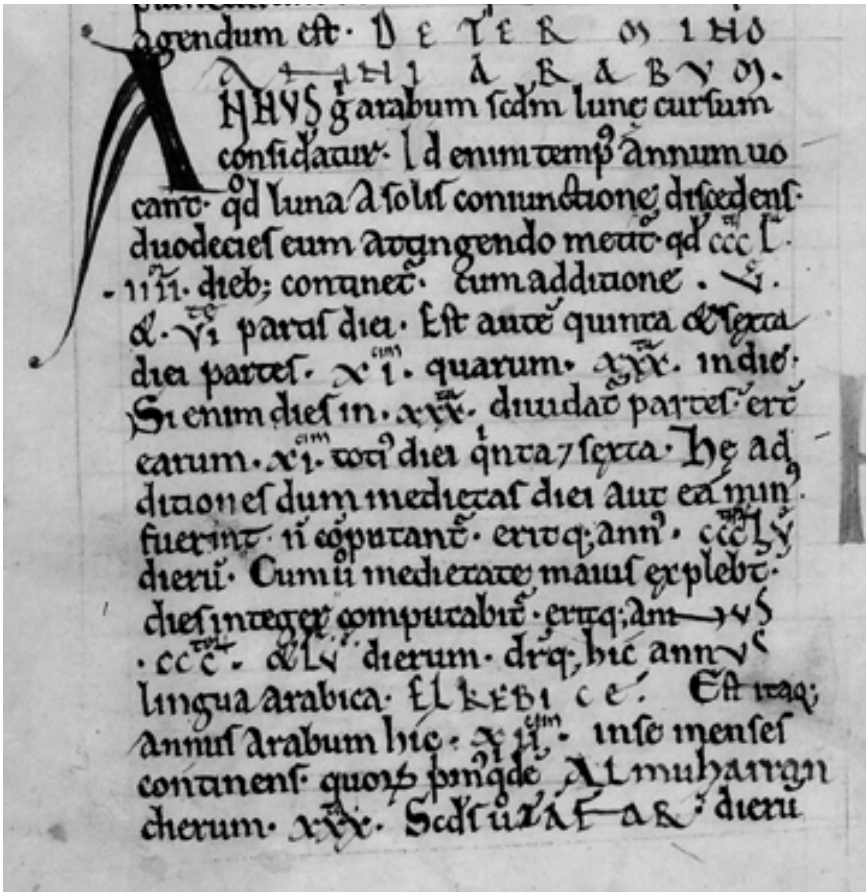 agendum est· DE TERMINO
ANNI ARABUM·
ANNUS g̊ arabum scd̄m lunę cursum
consid̄atur· Id enim temp⁹ Annum uo
cant· qd̊ luna A solis coniunctionę discedens·
duodecies eum Attingendo metit᷑· qd̄ cccL·
·IIII· dieb; continet᷑· cum additione · v·
&· vi partis diei· Est autē quinta & sexta
diei partes· xi· quarum· xxx· in die·
Si enim dies in· xxx· diuidat᷑ partes· er̄t
earum· xi· toti⁹ diei qinta 7 sexta· Hę ad
ditiones dum medietas diei aut eā min⁹
fuerint· n̄ cōputant᷑· eritq; ann⁹· cccLv
dierū· Cum ů medietatę maius explebit᷑·
dies integer computabit᷑· eritq; annus
·ccc· & Lv dierum· dr̄q; hic annus
lingua arabica· ELKEBICE· Est itaq;
annus Arabum hic· xii· in se menses
continens· quoꝝ pm⁹ qdē ALmuharran
dierum· xxx· Scds ů SAFAR· dierū